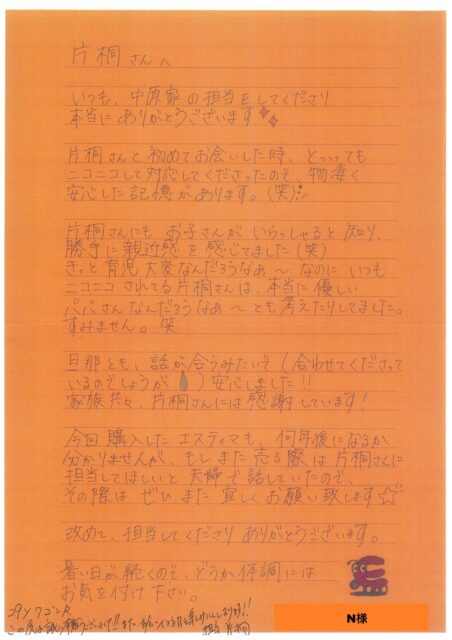 片桐さんへ
いつも、中原家の担当をしてくださり
本当にありがとうございます
片桐さんと初めてお会いした時、とっっっても
ニコニコして対応してくださったので、物凄く
安心した記憶があります。(笑)
片桐さんにもお子さんがいらっしゃると知り、
勝手に親近感を感じてました(笑)
きっと育児大変なんだろうなぁ〜なのにいつも
ニコニコされてる片桐さんは、本当に優しい
パパさんなんだろうなぁ〜とも考えたりしてました。
すみません。笑
旦那とも、話が合うみたいで(合わせてくださって
いるのでしょうが)安心しました!!
家族共々、片桐さんには感謝しています!
今回購入したエスティマも、何年後になるか
分かりませんが、もしまた売る際は片桐さんに
担当してほしいと夫婦で話していたので、
その際はぜひまた宜しくお願い致します☆
改めて、担当してくださりありがとうございます。
暑い日が続くので、どうか体調には
お気を付け下さい。
29Y ワゴンR
この度は誠に有難うございました!!また
片桐
N様